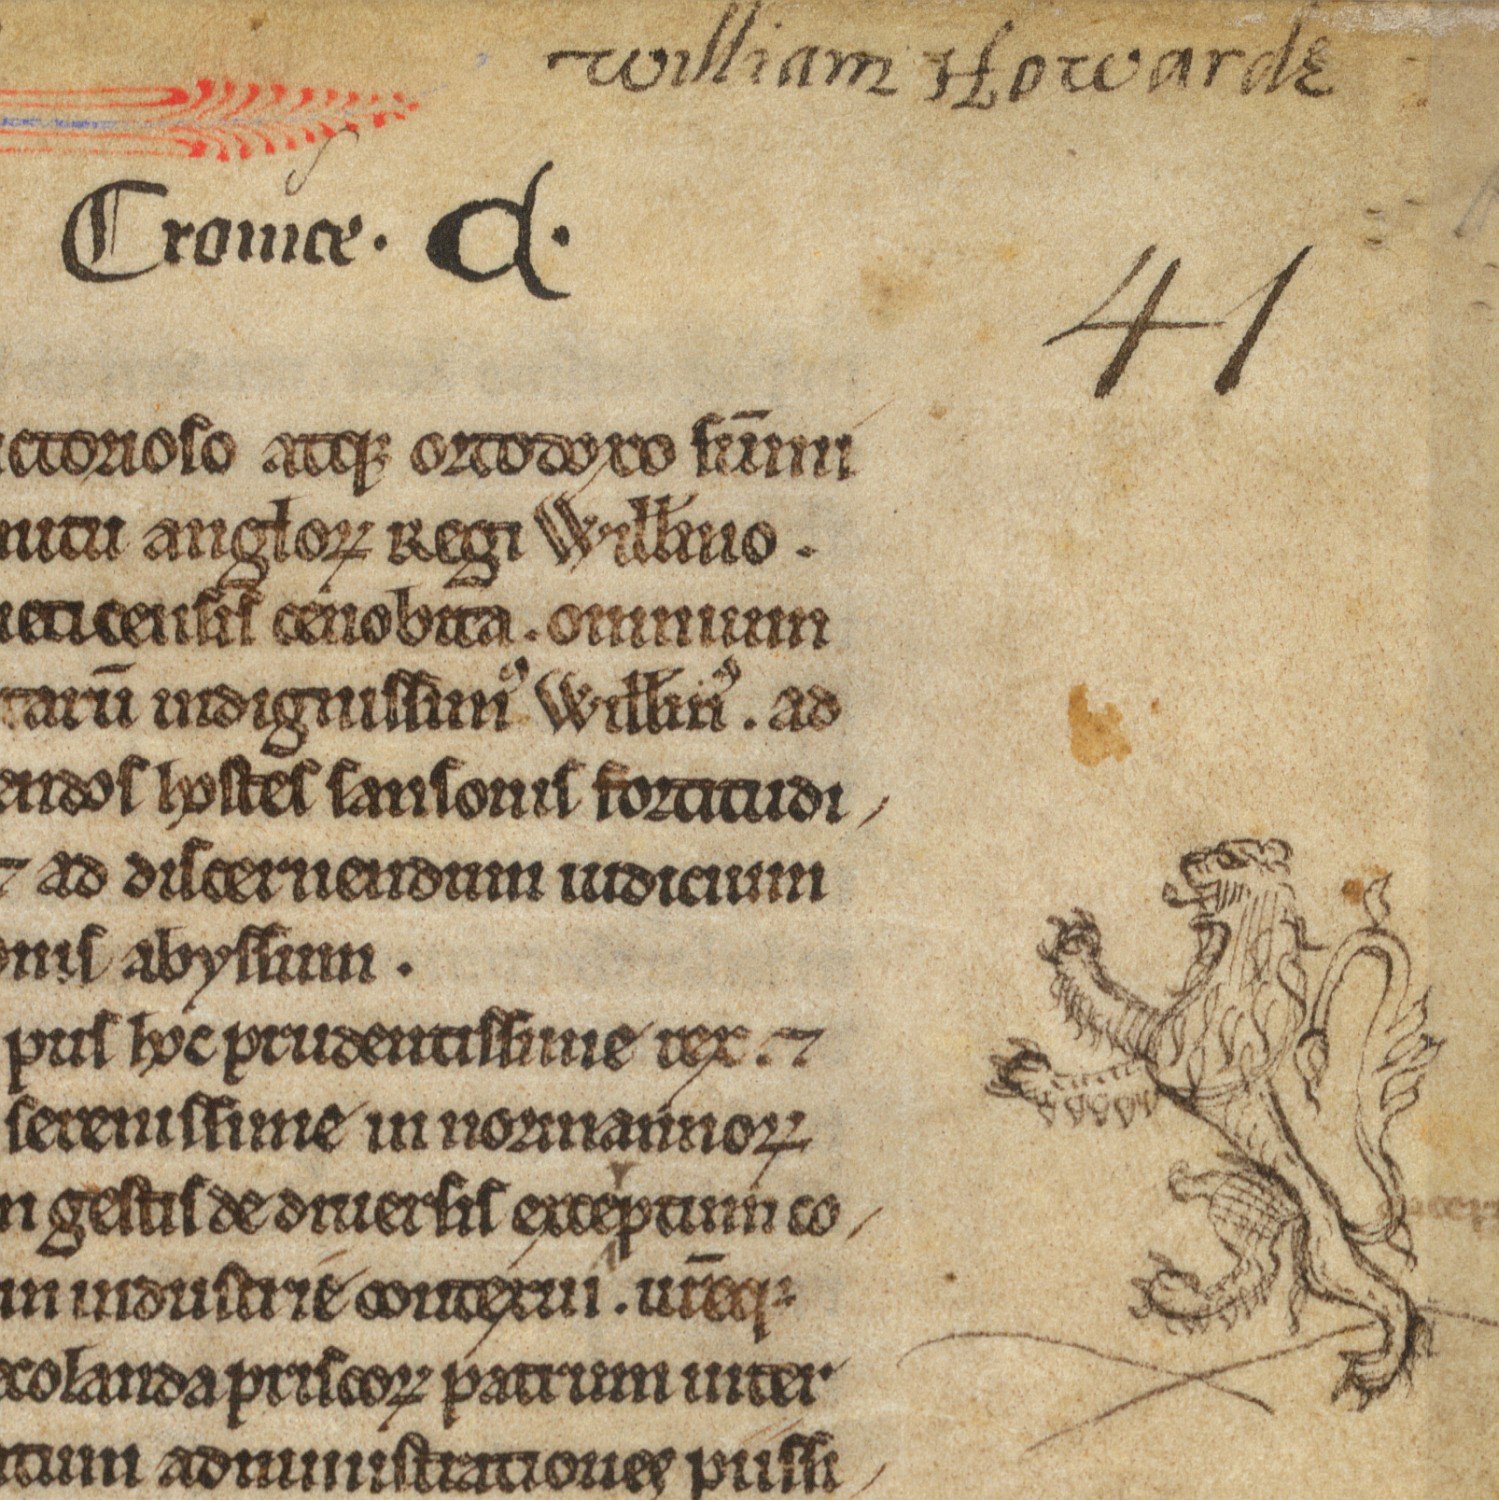 william Howarde
Cronice. d.
41
ctorioso atq; ortodoxo sūmi
nutu angloꝝ Regi Willmo.
eticensis cenobita. omnium
tarū indignissimꝰ Willmꝰ. ad
endos hostes sansonis fortitudi
⁊ ad discernendum iudicium
onis abyssum.
pus hoc prudentissime rex. ⁊
serenissime in normannoꝝ
n gestis de diuersis exceptum co
m industrie contexui. urēq;
colanda priscoꝝ patrum inter
tum administrationes piissi